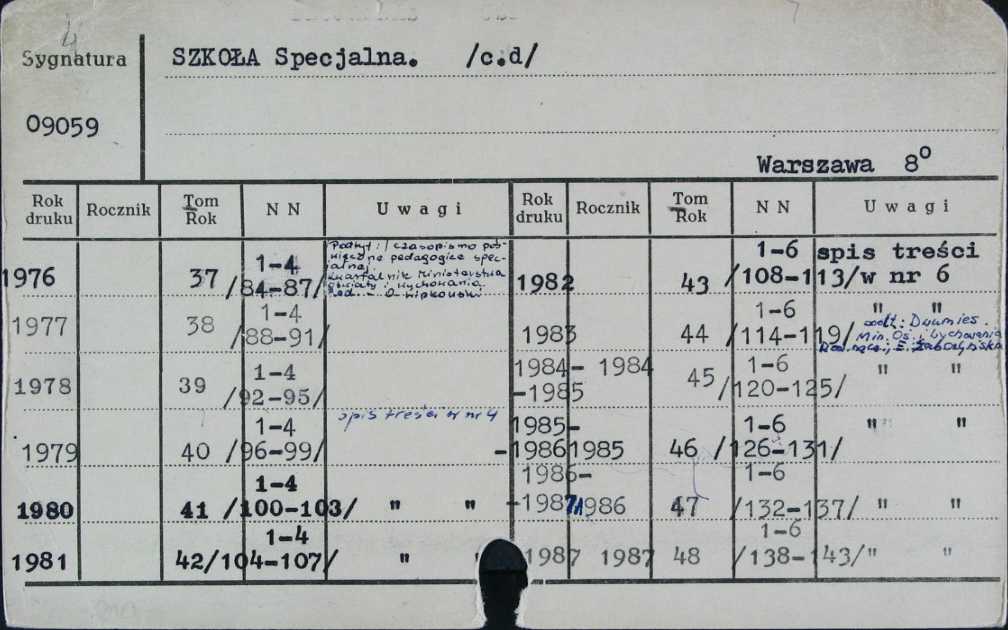 4
Sygnatura
SZKOŁA Specjalna. /c.d/
09059
Warszawa 8o
Rok druku Rocznik Tom Rok N N Uwagi Rok druku Rocznik Tom Rok N N Uwagi
1976 37 1-4 /84-87/
Podtyt: czasopismo poś-
więcone pedagogice spec-
jalnej
Kwartalnik Ministerstwa
Oświaty i Wychowania
Red. - O Lipkowski
1977 38 1-4 /88-91/
1978 39 1-4 /92-95/
spis treści w nr 4
1979 40 1-4 /96-99/
1980 41 1-4 /100-103/ " "
1981 42 1-4 /104-107/ " "
1982 43 1-6 /108-113/ spis treści
w nr 6
1983 44 1-6 /114-119/ " "
Dwumies.
Min. Oś. i Wychowania
1984-
-1985 1984 45 1-6 /120-125/ " "
1985-
-1986 1985 46 1-6 /126-131/ " "
1986-
-1987 1986 47 1-6 /132-137/ " "
1987 1987 48 1-6 /138-143/ " "